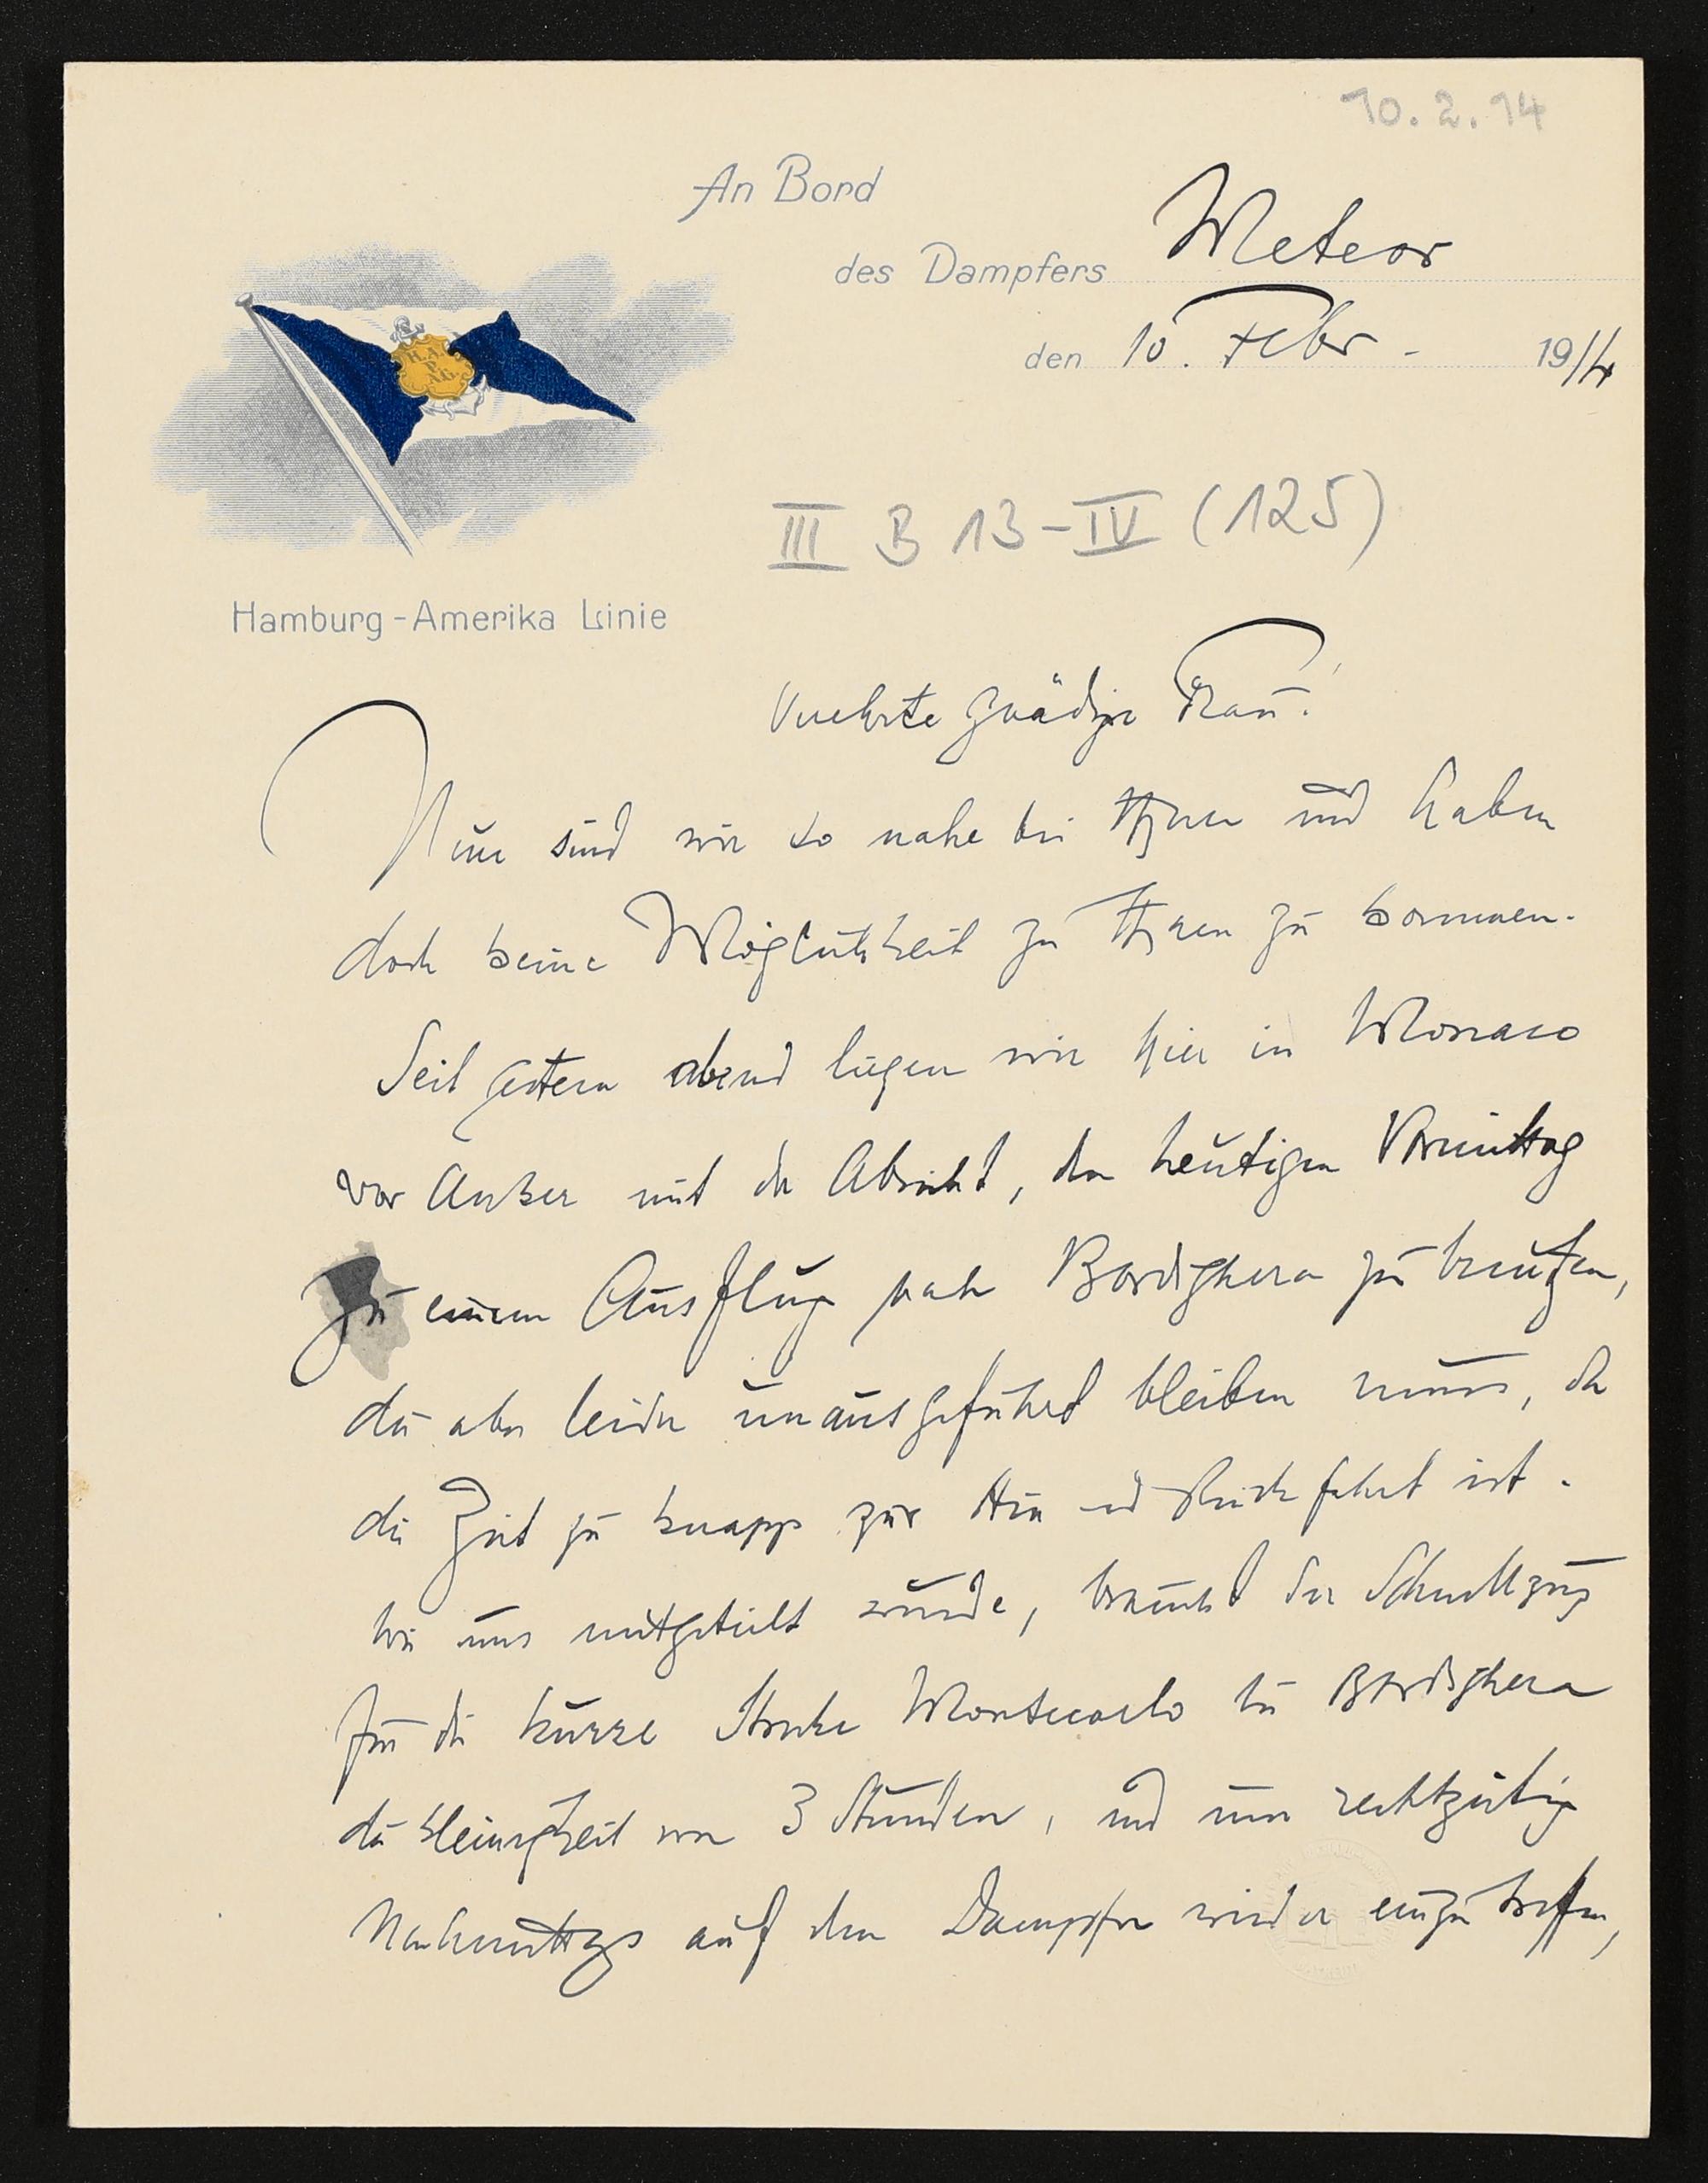 10.2.14
An Bord
des Dampfers Meteor
den 10. Febr. 1914
H.A.
P.
A.G.
III B 13-IV (125)
Hamburg-Amerika Linie
Verehrte gnädige Frau!
Nun sind wir so nahe bei Ihnen und haben
doch keine Möglichkeit zu Ihnen zu kommen.
Seit gestern abend liegen wir hier in Monaco
vor Anker mit der Absicht, den heutigen Vormittag
zu einem Ausflug nach Bordighera zu benutzen,
die aber leider unausgeführt bleiben muss, da
die Zeit zu knapp zur Hin und Rückfahrt ist.
Wie uns mitgeteilt wurde, braucht der Schnellzug
für die kurze Strecke Montecarlo bis Bordighera
die Kleinigkeit von 3 Stunden, und um rechtzeitig
Nachmittags auf dem Dampfer wieder einzutreffen,